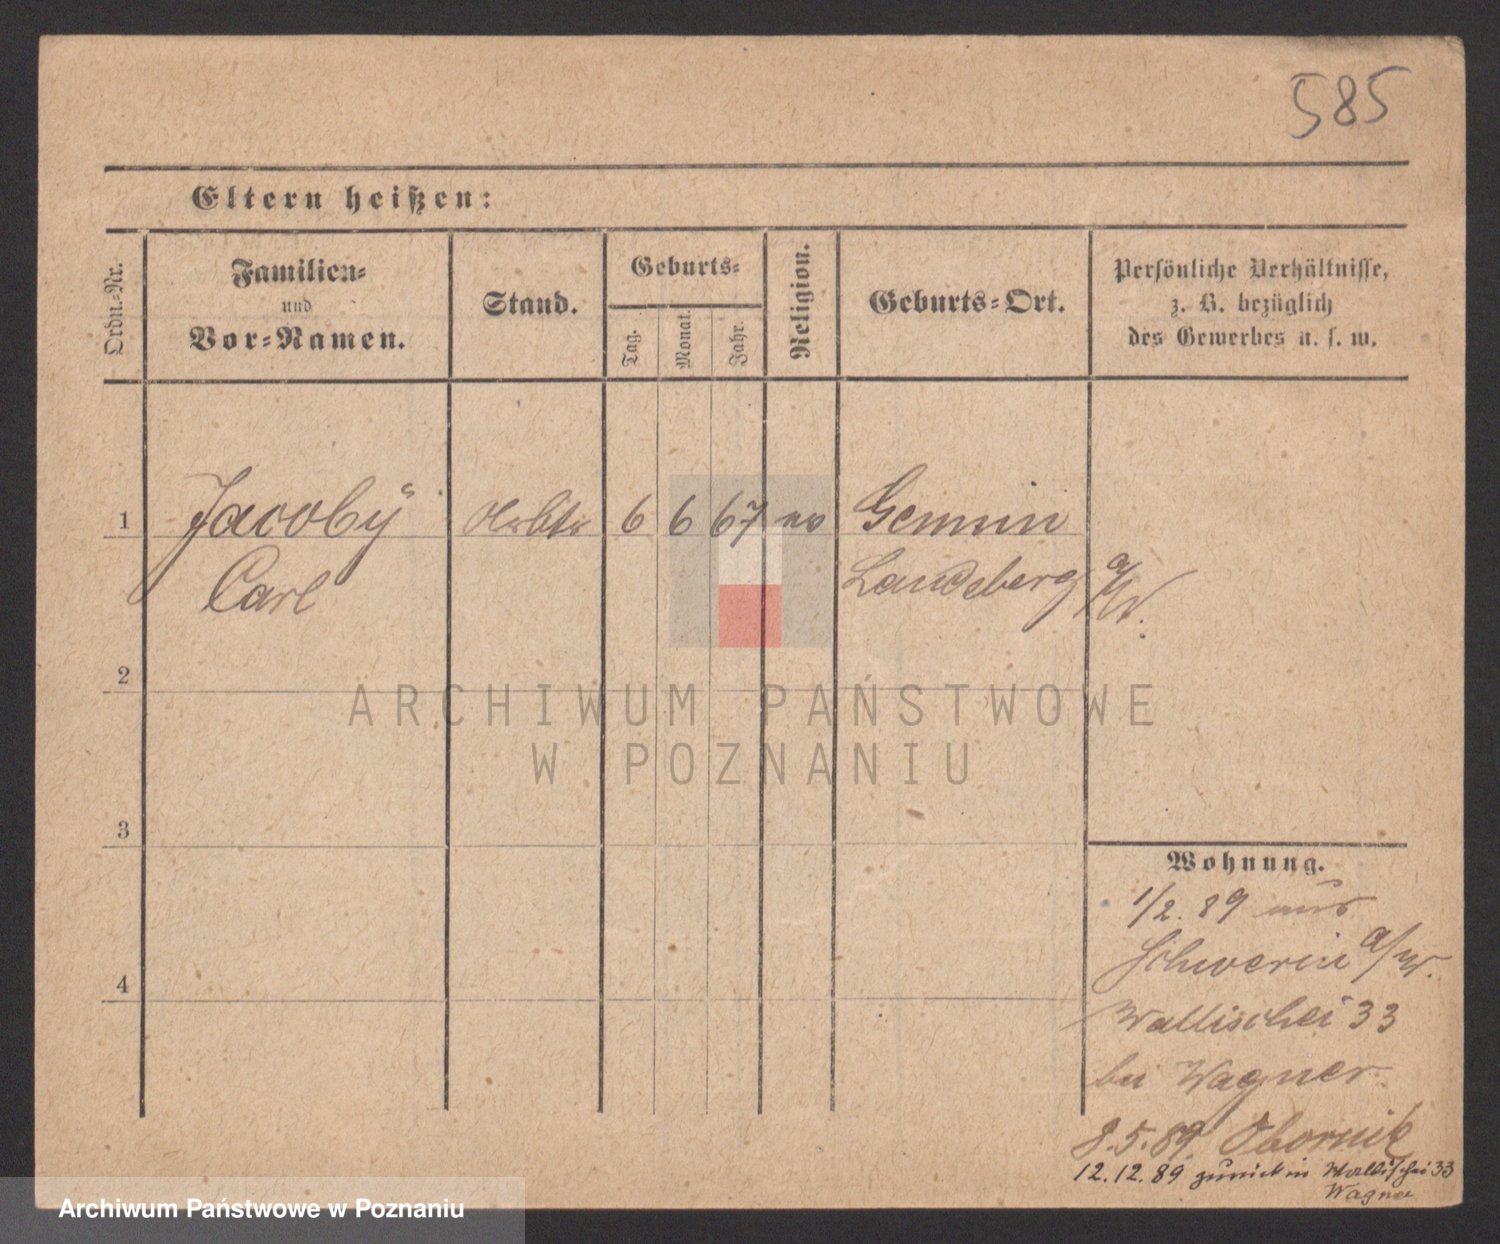 585
Eltern heißen:
Ordn.-Nr.
Familien-
und
Vor-Namen.
Stand.
Geburts-
Tag.
Monat.
Jahr.
Religion.
Geburts-Ort.
Persönliche Verhältnisse,
z. B. bezüglich
des Gewerbes u. s. w.
1 Jacoby 6 6 67 Gennin
Carl Landsberg a/W.
2
ARCHIWUM PAŃSTWOWE
W POZNANIU
3
Wohnung.
1/2. 89 aus
Schwerin a/W.
4
Wallischei 33
bei Wagner
8.5.89. Obornik
12.12.89 zurück in Wallischei 33
Wagner
Archiwum Państwowe w Poznaniu